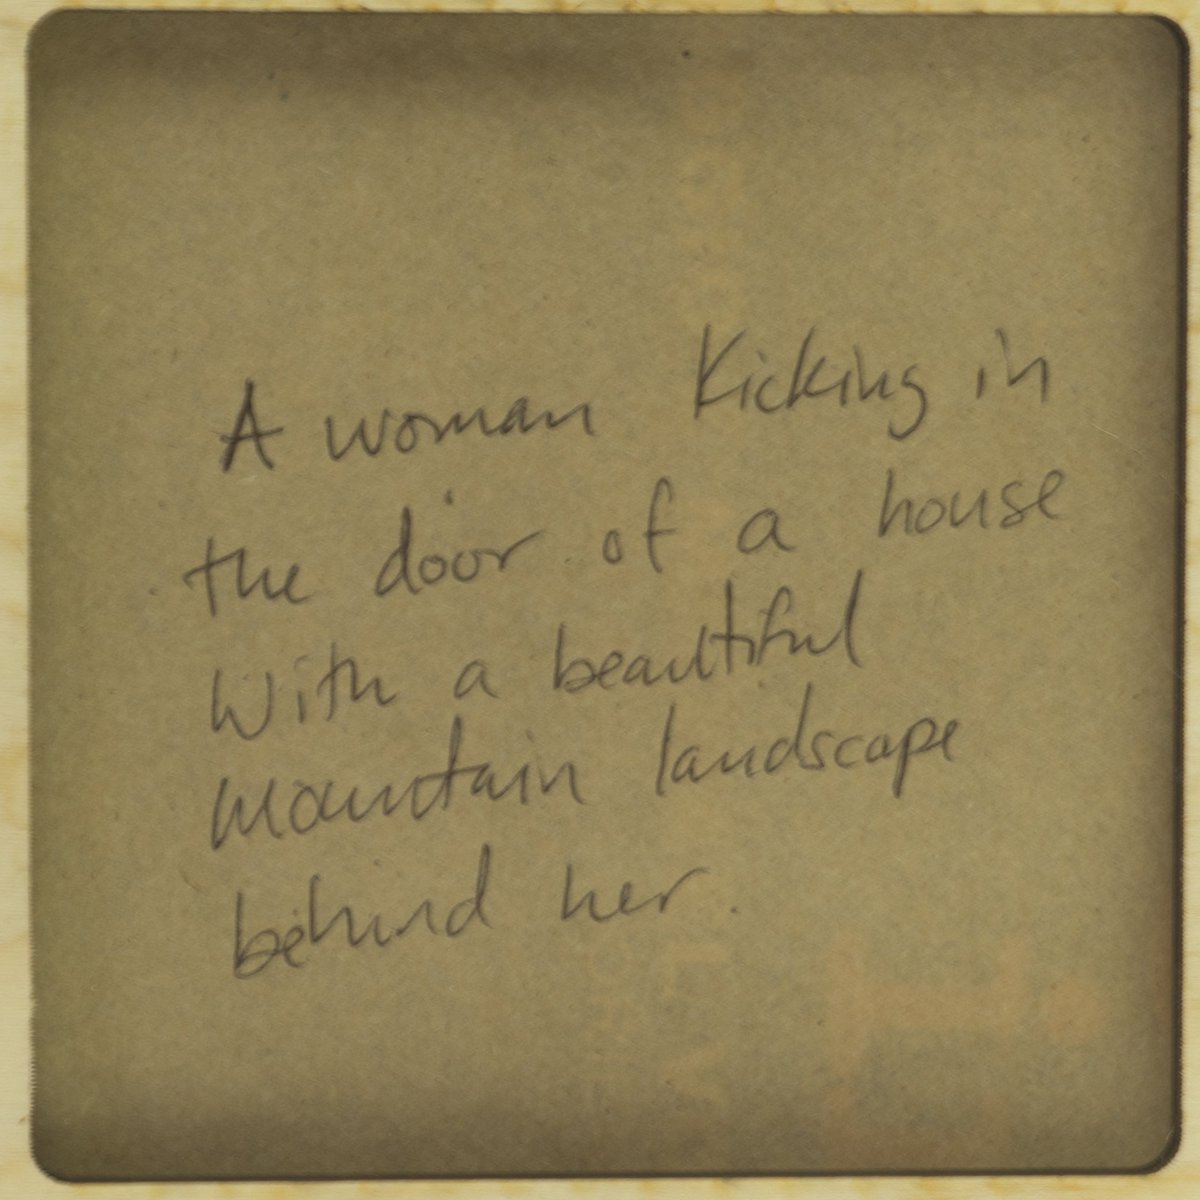 A woman Kicking in
the door of a house
With a beautiful
mountain landscape
behind her.